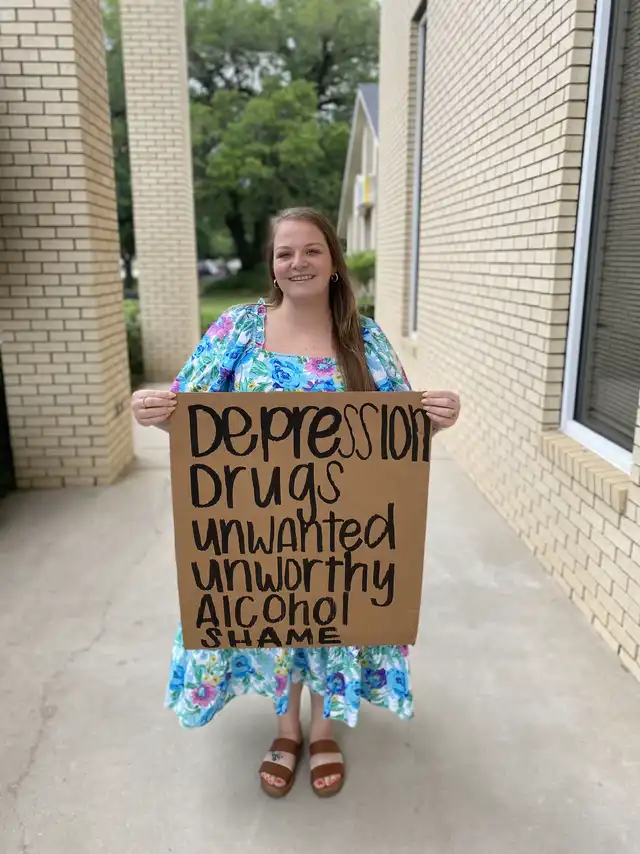 Depression
Drugs
unwanted
unworthy
Alcohol
SHAME